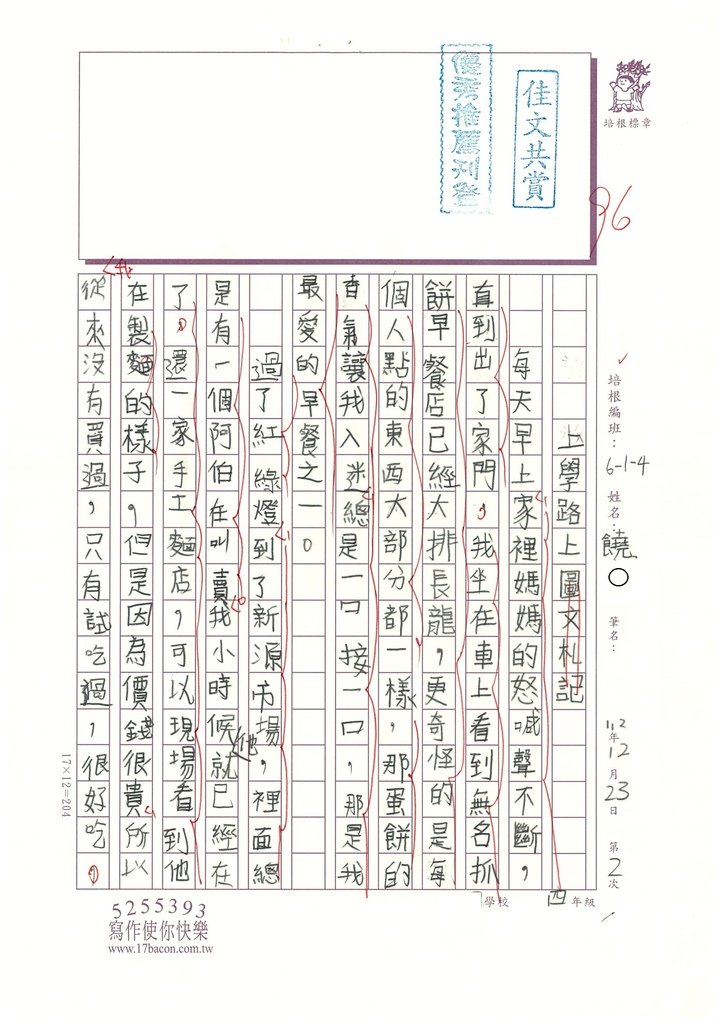 優秀推薦刊登
佳文共賞
培根標章
96
培根編班：6-1-4 姓名：饒○ 筆名： 112年12月23日 第2次
學校 四年級
上學路上圖文札記
每天早上家裡媽媽的怒喊聲不斷，
直到出了家門。我坐在車上看到無名抓
餅早餐店已經大排長龍，更奇怪的是每
個人點的東西大部分都一樣，那蛋餅的
香氣讓我入迷總是一口接一口，那是我
最愛的早餐之一。
過了紅綠燈到了新源市場，裡面總
是有一個阿伯在叫賣我小時候就已經在
他
了。還一家手工麵店，可以現場看到他
在製麵的樣子，但是因為價錢很貴所以
我
從來沒有買過，只有試吃過，很好吃。
17×12=204
5255393
寫作使你快樂
www.17bacon.com.tw